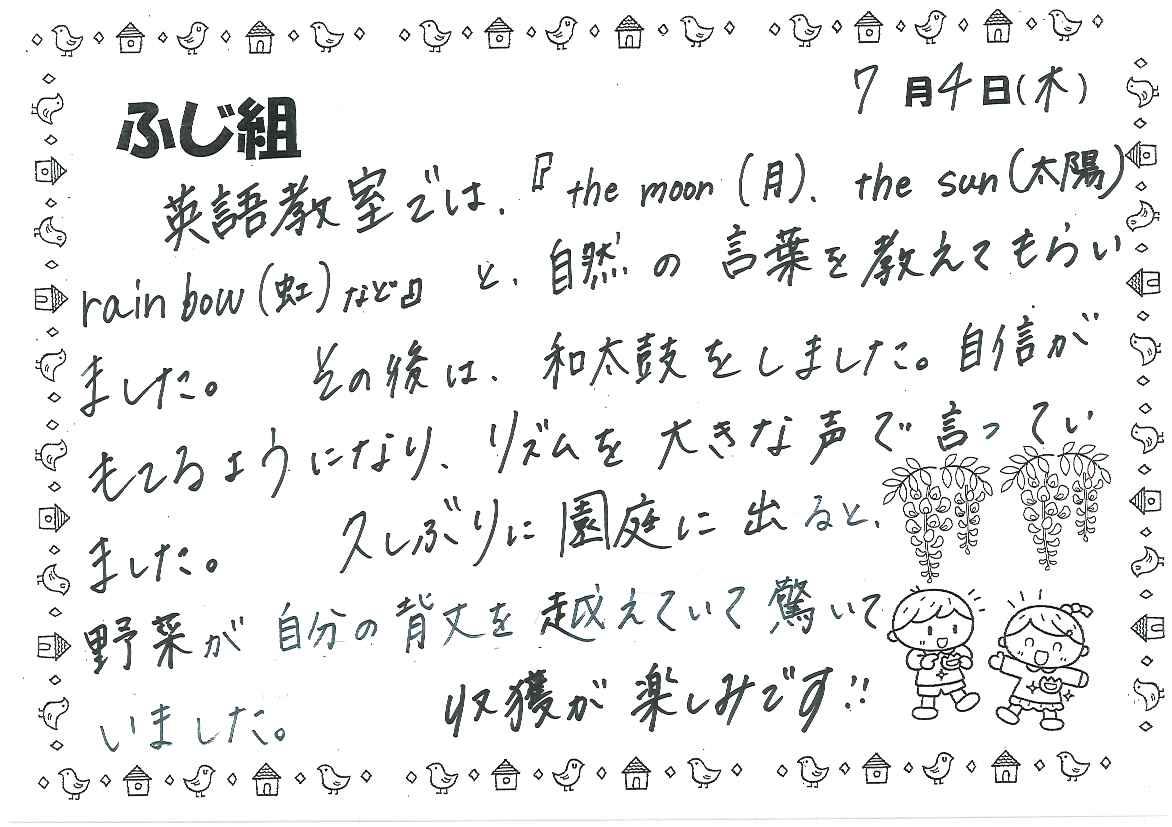 7月4日(木)
ふじ組
英語教室では、『the moon (月)、the sun(太陽)
rainbow(虹)など』と、自然の言葉を教えてもらい
ました。 その後は、和太鼓をしました。自信が
もてるようになり、リズムを大きな声で言ってい
ました。 久しぶりに園庭に出ると、
野菜が自分の背丈を越えていて驚いて
いました。 収穫が楽しみです!!